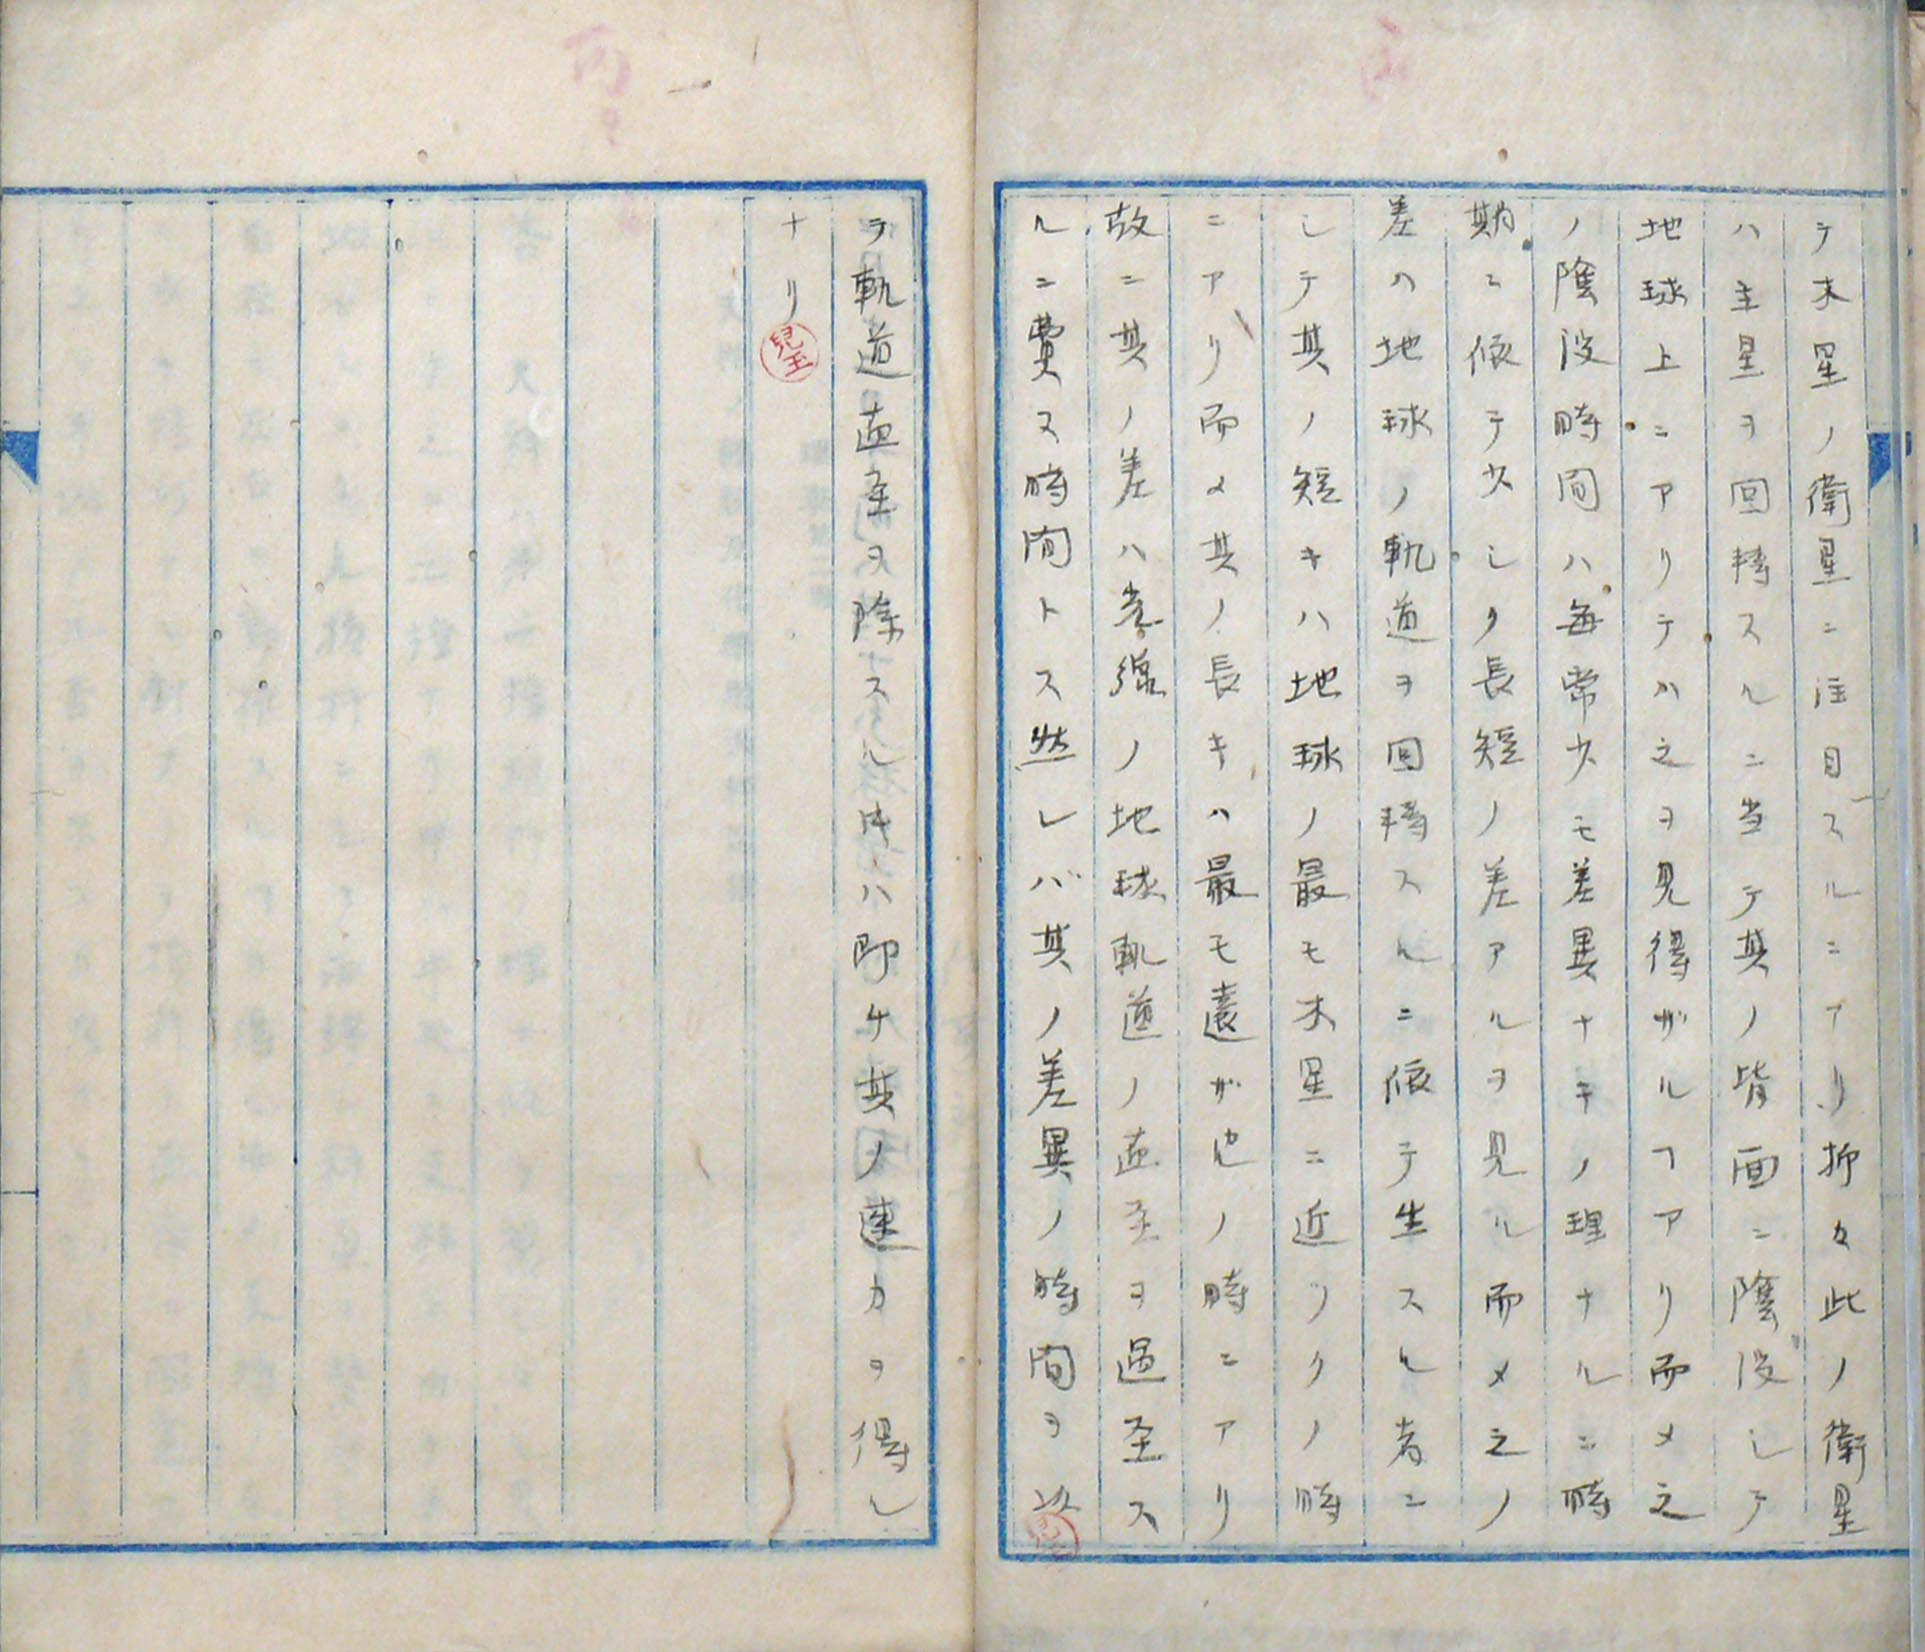 テ木星ノ衛星ニ注目スルニアリ抑々此ノ衛星
ハ主星ヲ回轉スルニ当テ其ノ背面ニ隂没シテ
地球上ニアリテハ之ヲ見得ザルヿアリ而メ之
ノ隂没時間ハ毎常少モ差異ナキノ理ナルニ時
期ニ依テ少シク長短ノ差アルヲ見ル而メ之ノ
差ハ地球ノ軌道ヲ回轉スルニ依テ生スル者ニ
シテ其ノ短キハ地球ノ最モ木星ニ近ツクノ時
ニアリ而メ其ノ長キハ最モ遠ザ也ノ時ニアリ
故ニ其ノ差ハ光線ノ地球軌道ノ直全ヲ過全ス
ルニ費ス時間トス然レバ其ノ差異ノ時間ヲ以
テ軌道直全ヲ除スル時ハ即チ其ノ速力ヲ得ル
ナリ
兒玉